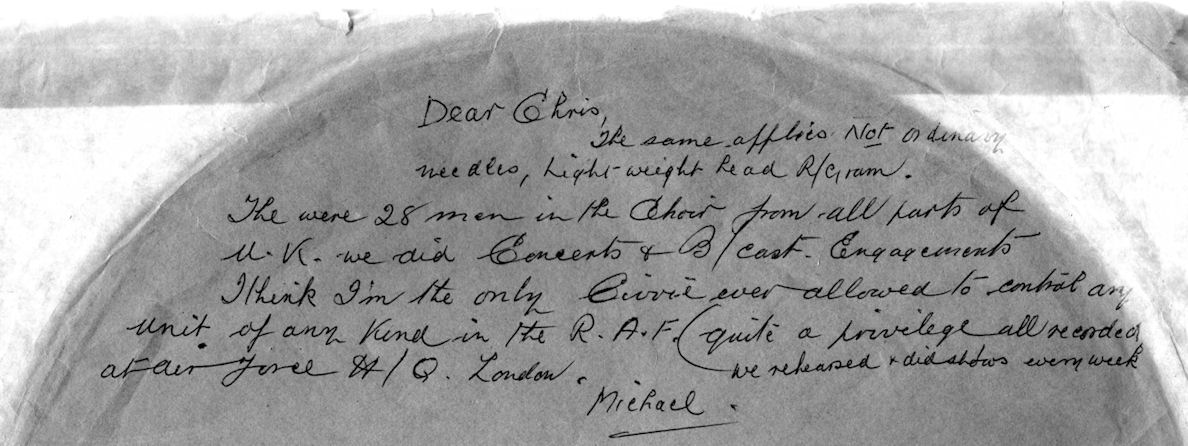 Dear Chris,
The same applies Not ordinary
needles, Light-weight head R/Gram.
The were 28 men in the Choir from all parts of
U.K. we did Concerts & B/cast. Engagements
I think I'm the only Civvie ever allowed to control any
unit of any kind in the R.A.F. (quite a privilege all recorded
at air force H/Q. London.
we rehearsed & did shows every week
Michael.